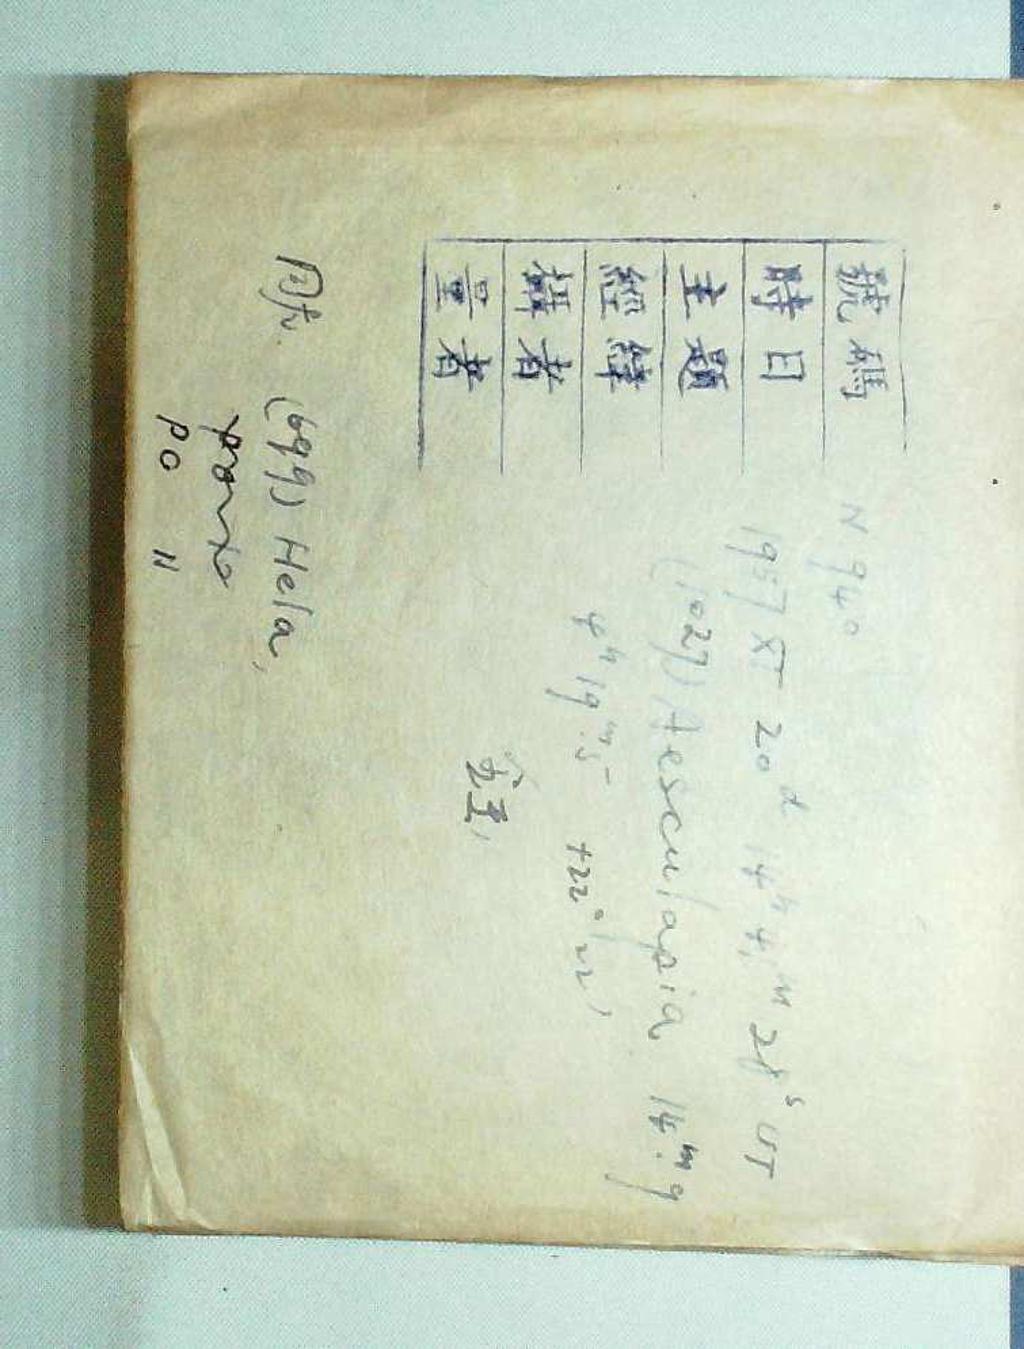 號碼 N 940
時日 1957 XI 20ᵈ 14ʰ 4ᵐ 28ˢ UT
主題 (1027) Aesculapia 14ᵐ.9
經緯 4ʰ 19ᵐ.5 +22° 22′
攝者
量者
(699) Hela,
PO N